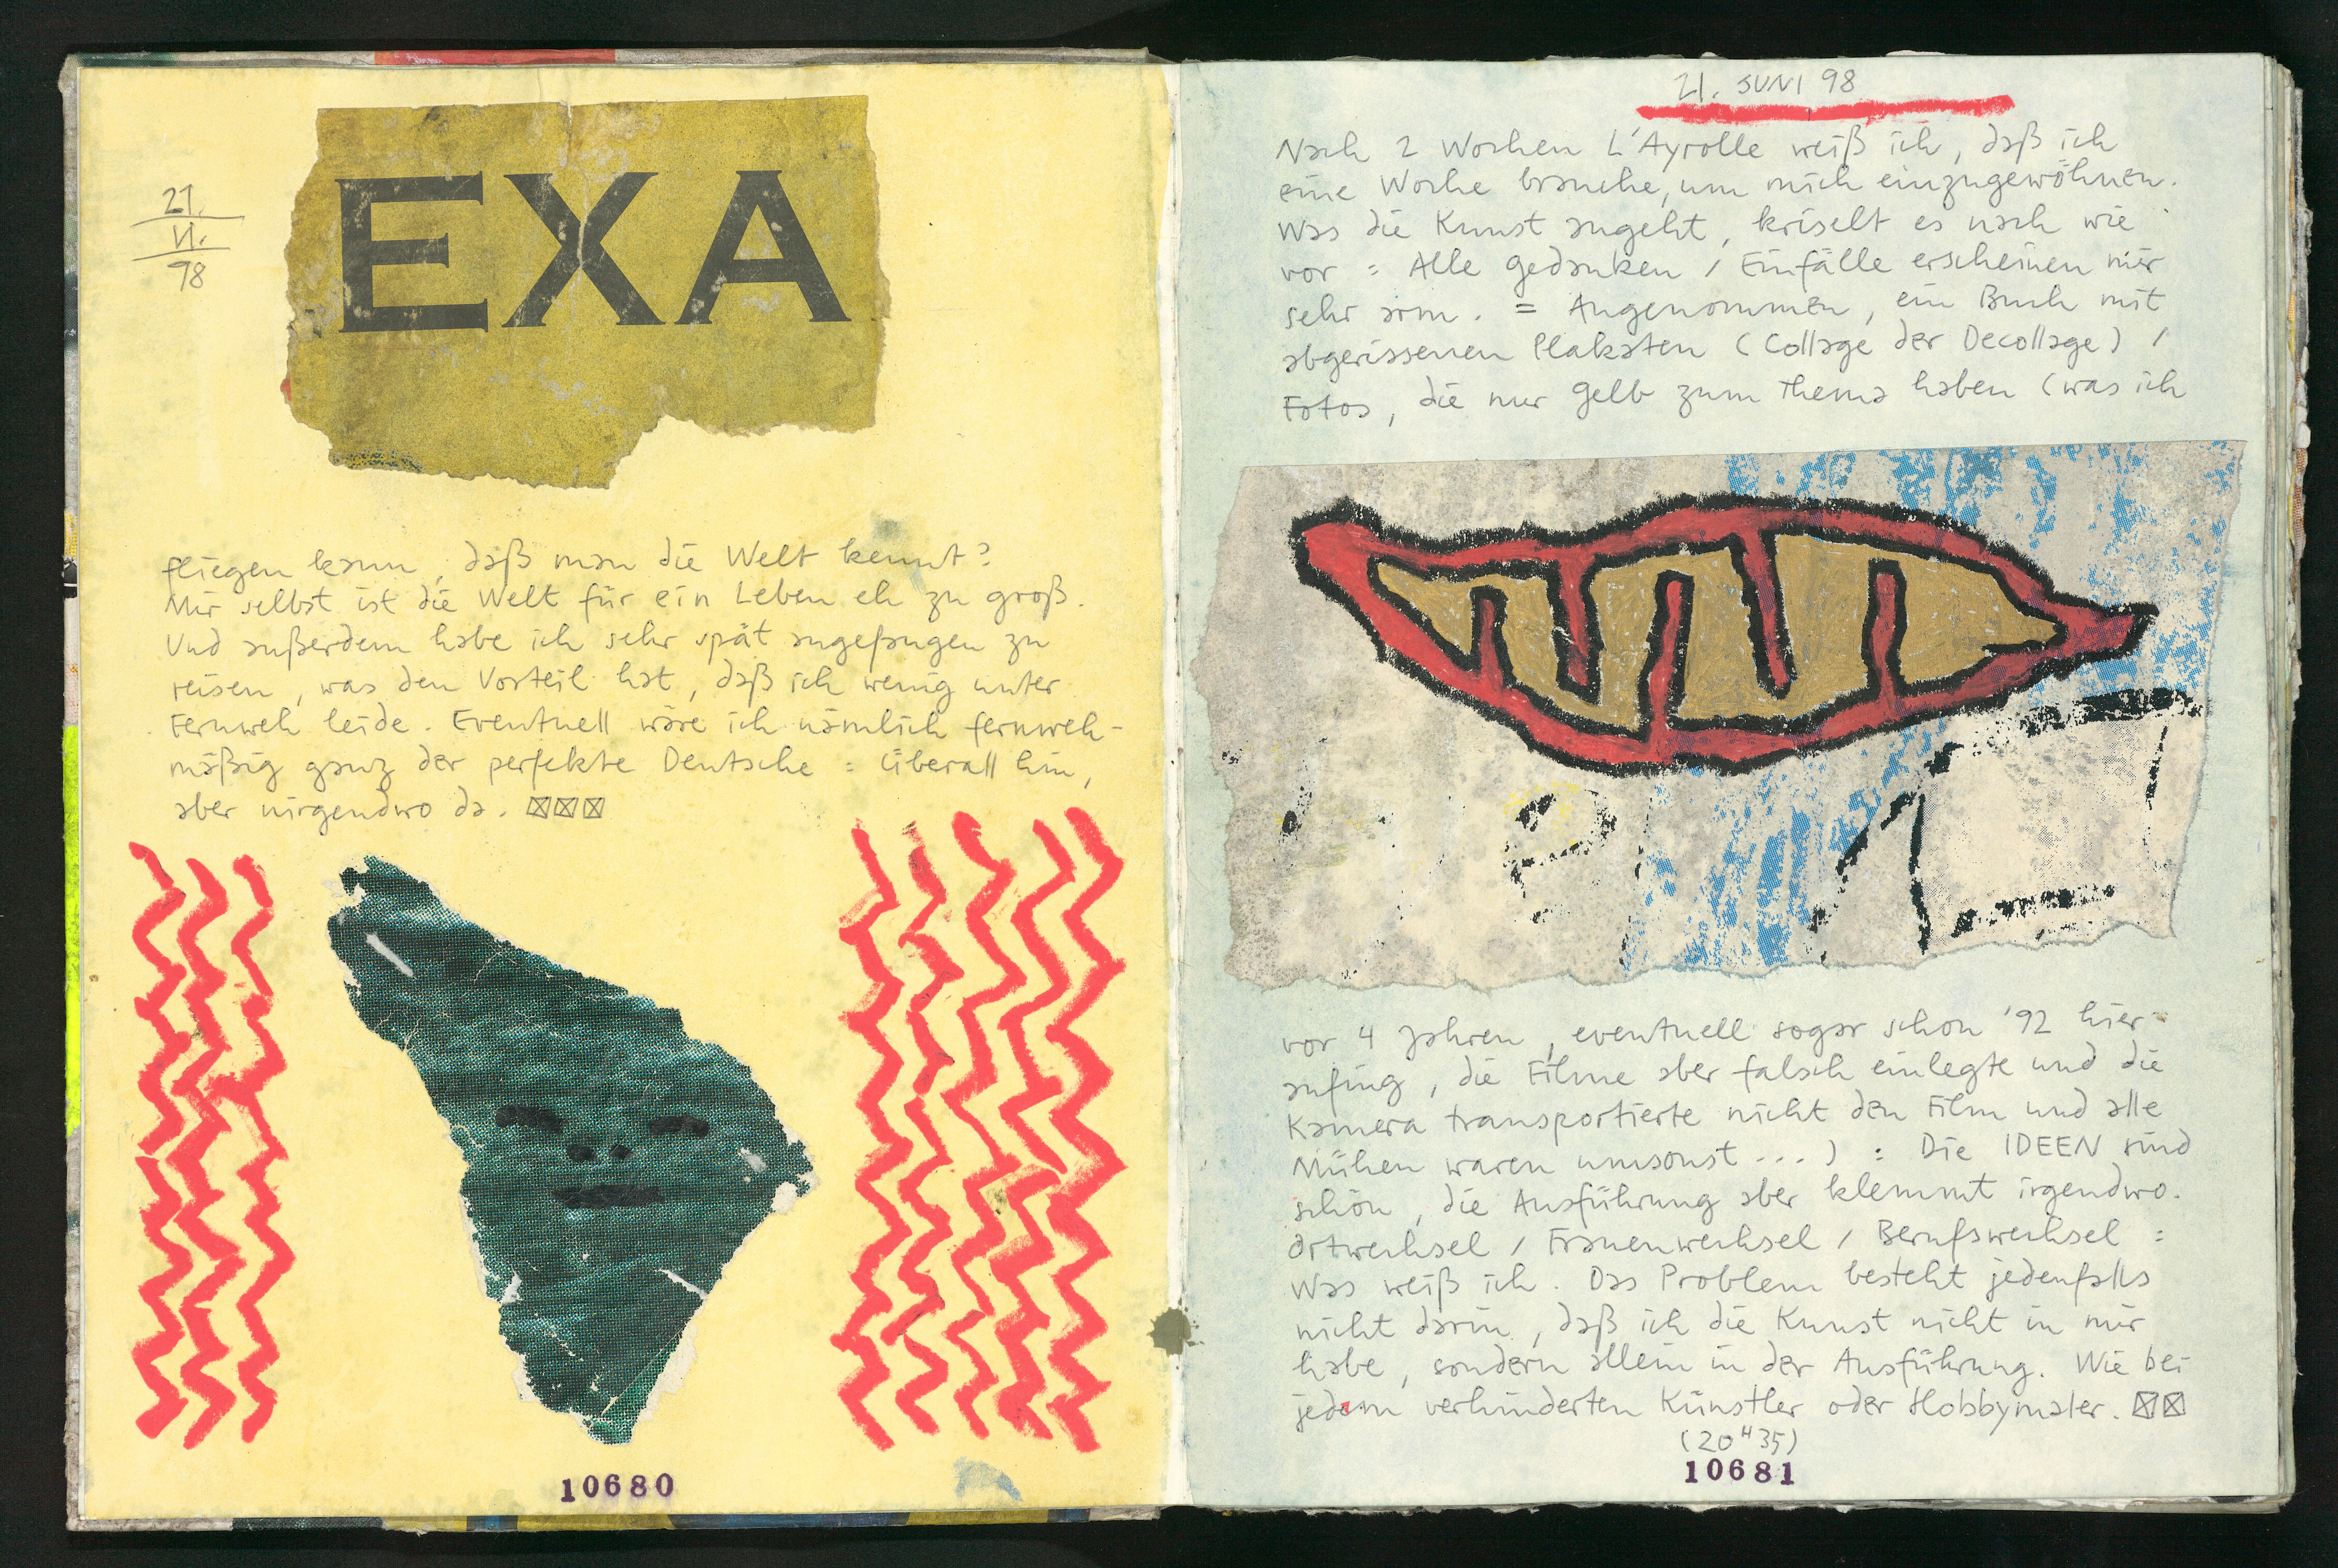 EXA
21.
VI.
98
fliegen kann, daß man die Welt kennt?
Mir selbst ist die Welt für ein Leben eh zu groß.
Und außerdem habe ich sehr spät angefangen zu
reisen, was den Vorteil hat, daß ich wenig unter
Fernweh leide. Eventuell wäre ich nämlich fernweh-
mäßig ganz der perfekte Deutsche = überall hin,
aber nirgendwo da. ☒☒☒
10680
21. JUNI 98
Nach 2 Wochen L'Ayrolle weiß ich, daß ich
eine Woche brauche, um mich einzugewöhnen.
Was die Kunst angeht, kriselt es nach wie
vor = Alle Gedanken / Einfälle erscheinen mir
sehr arm. = Angenommen, ein Buch mit
abgerissenen Plakaten (Collage der Decollage) /
Fotos, die nur Gelb zum Thema haben (was ich
vor 4 Jahren, eventuell sogar schon '92 hier
anfing, die Filme aber falsch einlegte und die
Kamera transportierte nicht den Film und alle
Mühen waren umsonst...) : Die IDEEN sind
schön, die Ausführung aber klemmt irgendwo.
Ortwechsel / Frauenwechsel / Berufswechsel :
Was weiß ich. Das Problem besteht jedenfalls
nicht darin, daß ich die Kunst nicht in mir
habe, sondern allein in der Ausführung. Wie bei
jedem verhinderten Künstler oder Hobbymaler. ☒☒
(20H35)
10681